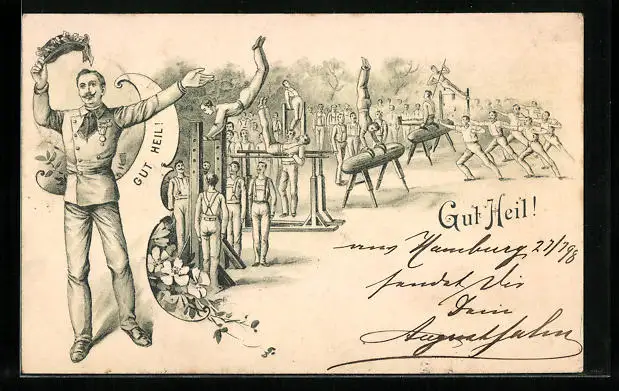 GUT HEIL!
Gut Heil!
aus Hamburg 27/7 98
sendet Dir
Dein